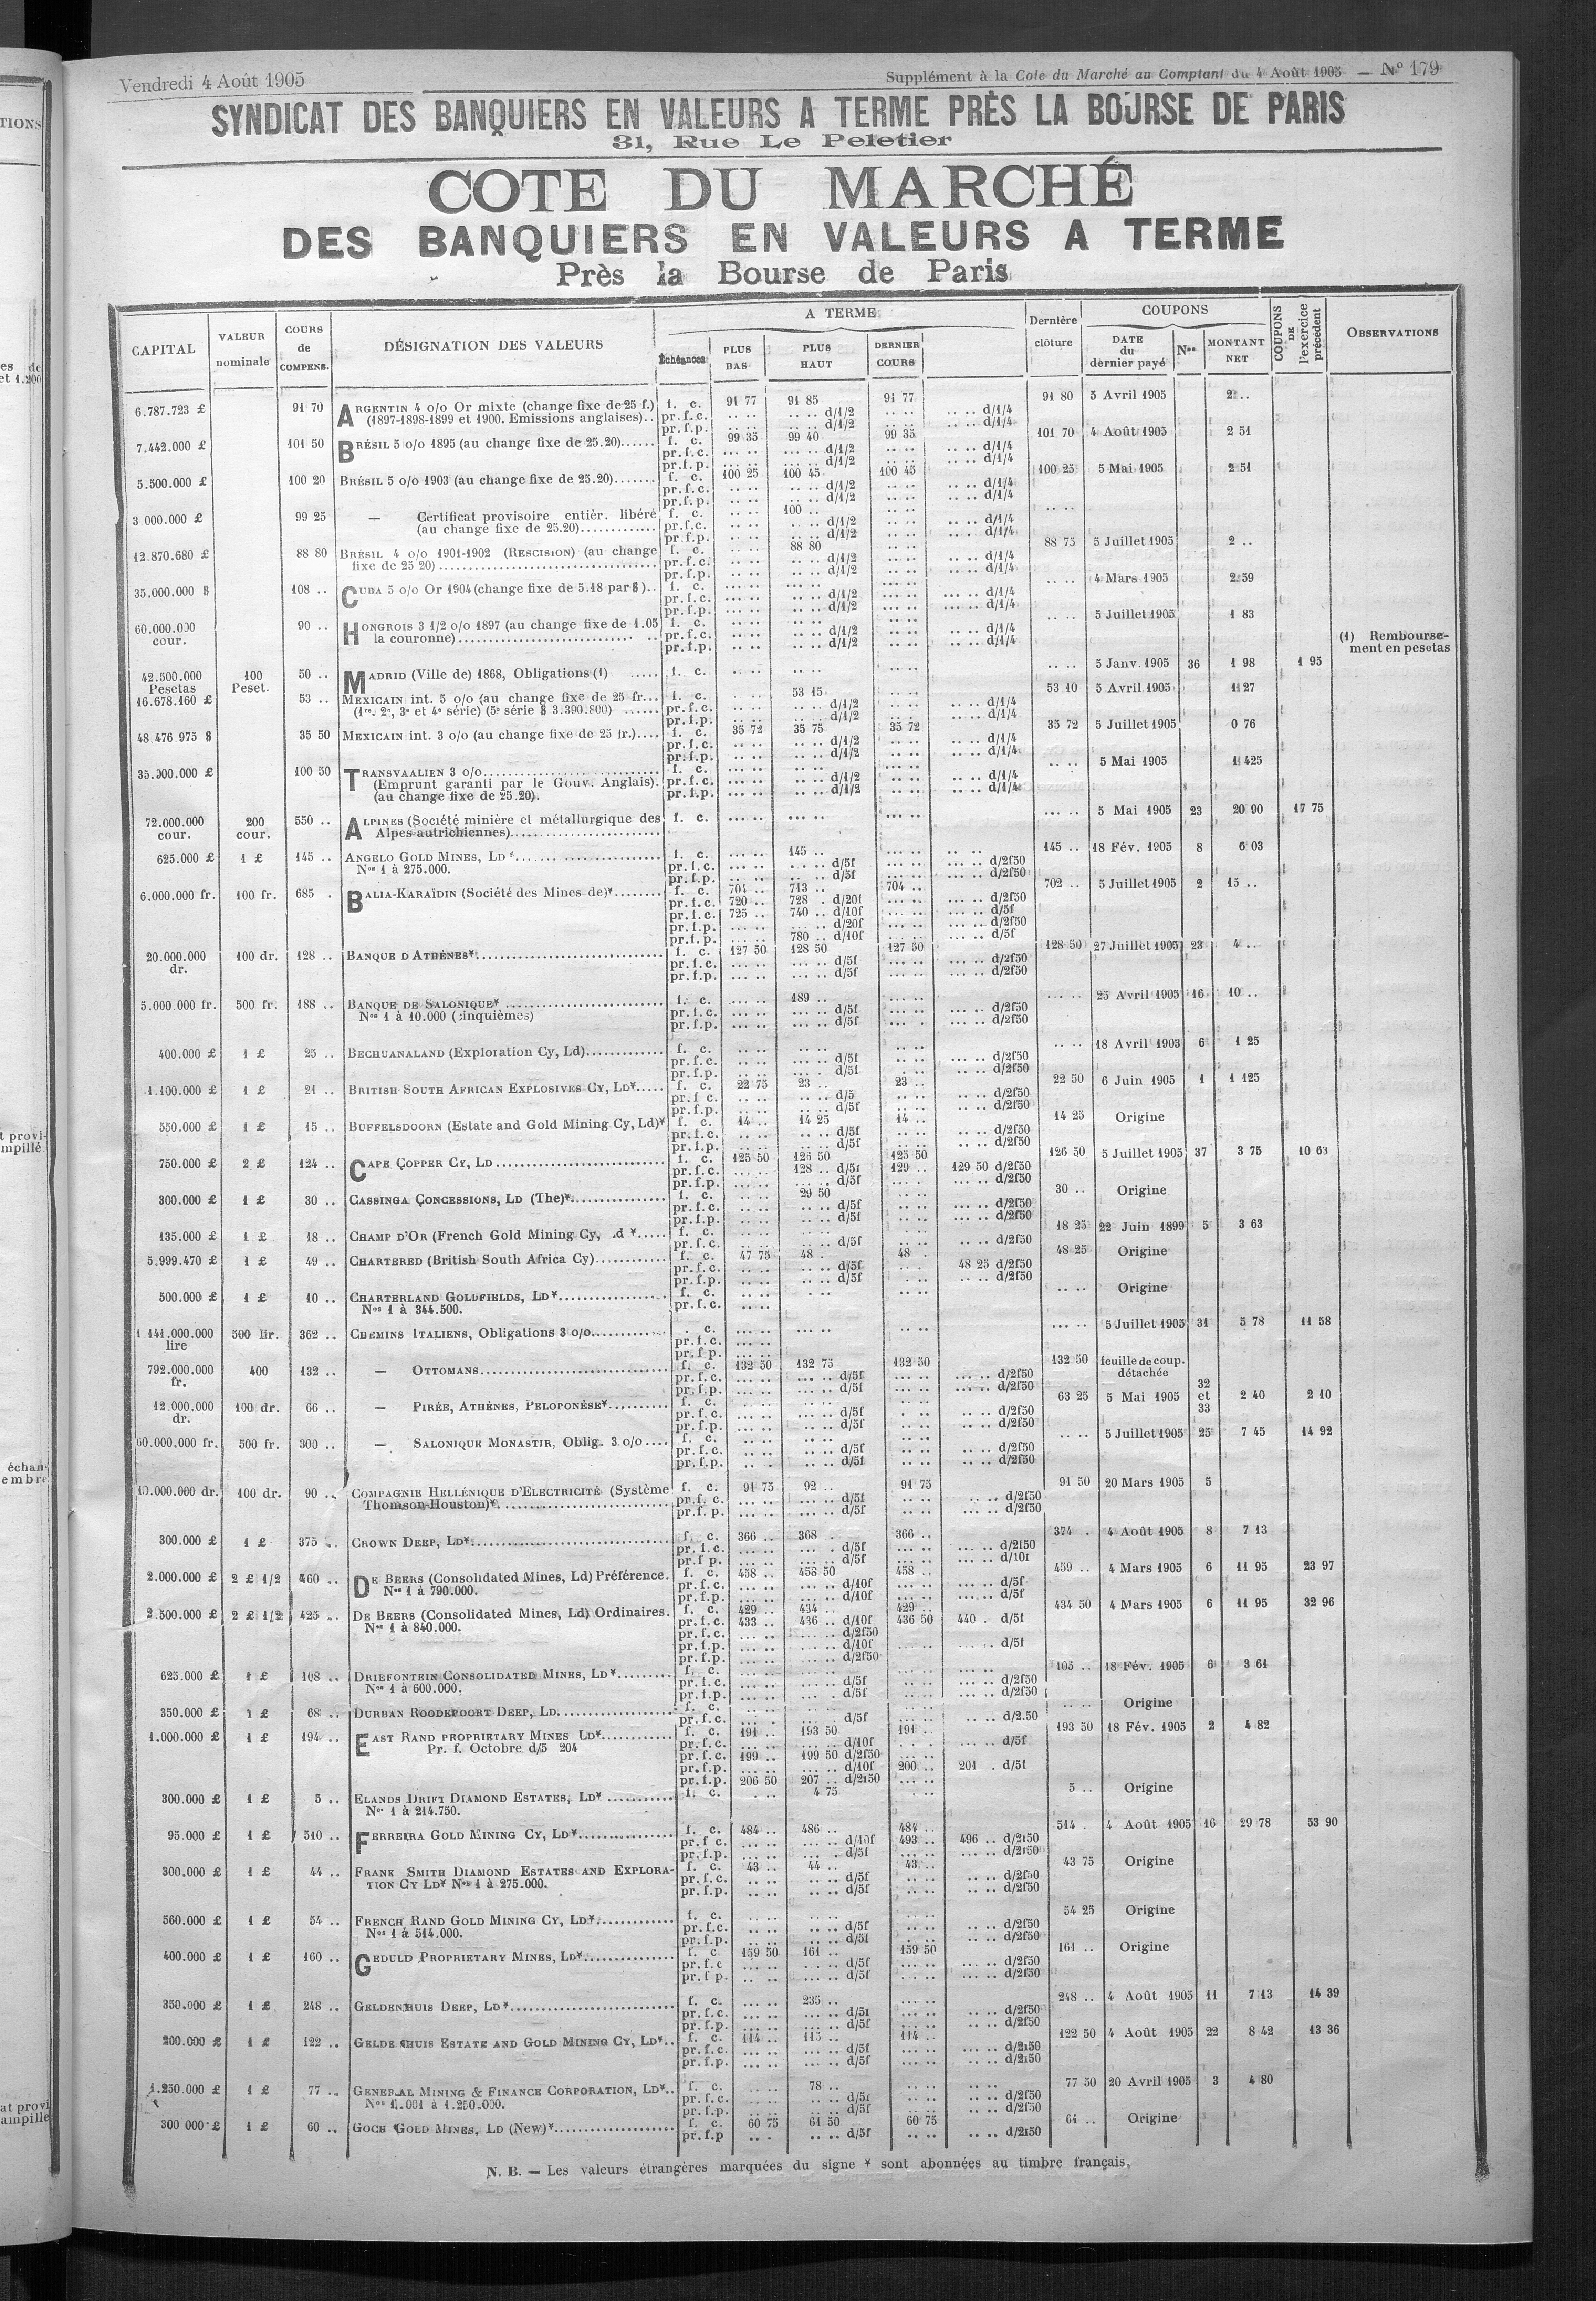 Vendredi 4 Août 1905
Supplément à la Cote du Marché au Comptant du 4 Août 1905 — N° 179
SYNDICAT DES BANQUIERS EN VALEURS A TERME PRÈS LA BOURSE DE PARIS
31, Rue Le Peletier
COTE DU MARCHÉ
DES BANQUIERS EN VALEURS A TERME
Près la Bourse de Paris
CAPITAL | VALEUR nominale | COURS de COMPENS. | DÉSIGNATION DES VALEURS | Échéances | A TERME | PLUS BAS | PLUS HAUT | DERNIER COURS | Dernière clôture | COUPONS | DATE du dernier payé | Nos | MONTANT NET | COUPONS DE l'exercice précédent | OBSERVATIONS
6.787.723 £ 91 70 ARGENTIN 4 o/o Or mixte (change fixe de 25 f.) f. c. 91 77 91 85 91 77 91 80 5 Avril 1905 2 ..
(1897-1898-1899 et 1900. Emissions anglaises).. pr. f. c. d/1/2 d/1/4
pr. f. p. d/1/2 d/1/4
7.442.000 £ 101 50 BRÉSIL 5 o/o 1895 (au change fixe de 25.20)...... f. c. 99 35 99 40 99 35 101 70 4 Août 1905 2 51
pr. f. c. d/1/2 d/1/4
pr. f. p. d/1/2 d/1/4
5.500.000 £ 100 20 BRÉSIL 5 o/o 1903 (au change fixe de 25.20)....... f. c. 100 25 100 45 100 45 100 25 5 Mai 1905 2 51
pr. f. c. d/1/2 d/1/4
pr. f. p. d/1/2 d/1/4
3.000.000 £ 99 25 — Certificat provisoire entièr. libéré f. c. 100 ..
(au change fixe de 25.20)............. pr. f. c. d/1/2 d/1/4
pr. f. p. d/1/2 d/1/4
12.870.680 £ 88 80 BRÉSIL 4 o/o 1901-1902 (RESCISION) (au change f. c. 88 80 88 75 5 Juillet 1905 2 ..
fixe de 25 20) pr. f. c. d/1/2 d/1/4
pr. f. p. d/1/2 d/1/4
35.000.000 $ 108 .. CUBA 5 o/o Or 1904 (change fixe de 5.18 par $).. f. c. 4 Mars 1905 2 59
pr. f. c. d/1/2 d/1/4
pr. f. p. d/1/2 d/1/4
60.000.000 cour. 90 .. HONGROIS 3 1/2 o/o 1897 (au change fixe de 1.05 f. c. 5 Juillet 1905 1 83
la couronne) pr. f. c. d/1/2 d/1/4
pr. f. p. d/1/2 d/1/4
(1) Remboursement en pesetas
42.500.000 Pesetas 100 Peset. 50 .. MADRID (Ville de) 1868, Obligations (1) ..... f. c. 5 Janv. 1905 36 1 98 1 95
16.678.160 £ 53 .. MEXICAIN int. 5 o/o (au change fixe de 25 fr... f. c. 53 15 53 10 5 Avril 1905 1 27
(1re, 2e, 3e et 4e série) (5e série $ 3.390.800) ...... pr. f. c. d/1/2 d/1/4
pr. f. p. d/1/2 d/1/4
48 476 975 $ 35 50 MEXICAIN int. 3 o/o (au change fixe de 25 fr.).... f. c. 35 72 35 75 35 72 35 72 5 Juillet 1905 0 76
pr. f. c. d/1/2 d/1/4
pr. f. p. d/1/2 d/1/4
35.000.000 £ 100 50 TRANSVAALIEN 3 o/o f. c. 5 Mai 1905 1 425
(Emprunt garanti par le Gouv. Anglais). pr. f. c. d/1/2 d/1/4
(au change fixe de 25.20). pr. f. p. d/1/2 d/1/4
72.000.000 cour. 200 cour. 550 .. ALPINES (Société minière et métallurgique des f. c. 5 Mai 1905 23 20 90 17 75
Alpes autrichiennes)
625.000 £ 1 £ 145 .. ANGELO GOLD MINES, LD * f. c. 145 .. 145 .. 18 Fév. 1905 8 6 03
Nos 1 à 275.000. pr. f. c. d/5f d/2f50
pr. f. p. d/5f d/2f50
6.000.000 fr. 100 fr. 685 . BALIA-KARAÏDIN (Société des Mines de)*........ f. c. 704 .. 713 .. 704 .. 702 .. 5 Juillet 1905 2 15 ..
pr. f. c. 720 .. 728 . d/20f d/2f50
pr. f. c. 725 .. 740 .. d/10f d/5f
pr. f. p. d/20f d/2f50
pr. f. p. 780 .. d/10f d/5f
20.000.000 dr. 100 dr. 128 .. BANQUE D'ATHÈNES* f. c. 127 50 128 50 127 50 128 50 27 Juillet 1905 23 4 ..
pr. f. c. d/5f d/2f50
pr. f. p. d/5f d/2f50
5.000 000 fr. 500 fr. 188 .. BANQUE DE SALONIQUE* f. c. 189 .. 25 Avril 1905 16 10 ..
Nos 1 à 10.000 (cinquièmes) pr. f. c. d/5f d/2f50
pr. f. p. d/5f d/2f50
400.000 £ 1 £ 25 .. BECHUANALAND (Exploration Cy, Ld)............ f. c. 18 Avril 1903 6 1 25
pr. f. c. d/5f d/2f50
pr. f. p. d/5f d/2f50
1.100.000 £ 1 £ 21 .. BRITISH SOUTH AFRICAN EXPLOSIVES CY, LD*..... f. c. 22 75 23 .. 23 .. 22 50 6 Juin 1905 1 1 125
pr. f. c. d/5 d/2f50
pr. f. p. d/5f d/2f50
550.000 £ 1 £ 15 .. BUFFELSDOORN (Estate and Gold Mining Cy, Ld)* f. c. 14 .. 14 25 14 .. 14 25 Origine
pr. f. c. d/5f d/2f50
pr. f. p. d/5f d/2f50
750.000 £ 2 £ 124 .. CAPE COPPER CY, LD f. c. 125 50 126 50 125 50 126 50 5 Juillet 1905 37 3 75 10 63
pr. f. c. 128 .. d/5f 129 .. 129 50 d/2f50
pr. f. p. d/5f d/2f50
300.000 £ 1 £ 30 .. CASSINGA CONCESSIONS, LD (The)* f. c. 29 50 30 .. Origine
pr. f. c. d/5f d/2f50
pr. f. p. d/5f d/2f50
135.000 £ 1 £ 18 .. CHAMP D'OR (French Gold Mining Cy, *..... f. c. 18 25 22 Juin 1899 5 3 63
pr. f. c. d/5f d/2f50
5.999.470 £ 1 £ 49 .. CHARTERED (British South Africa Cy)............ f. c. 47 75 48 . 48 . 48 25 Origine
pr. f. c. d/5f 48 25 d/2f50
pr. f. p. d/5f d/2f50
500.000 £ 1 £ 10 .. CHARTERLAND GOLDFIELDS, LD* f. c. Origine
Nos 1 à 344.500. pr. f. c.
1 141.000.000 lire 500 lir. 362 .. CHEMINS ITALIENS, Obligations 3 o/o c. 5 Juillet 1905 31 5 78 11 58
pr. f. c.
pr. f. p.
792.000.000 fr. 400 132 .. — OTTOMANS f. c. 132 50 132 75 132 50 132 50 feuille de coup. détachée
pr. f. c. d/5f d/2f50
pr. f. p. d/5f d/2f50
12.000.000 dr. 100 dr. 66 .. — PIRÉE, ATHÈNES, PELOPONÈSE* f. c. 63 25 5 Mai 1905 32 et 33 2 40 2 10
pr. f. c. d/5f d/2f50
pr. f. p. d/5f d/2f50
60.000.000 fr. 500 fr. 300 .. — SALONIQUE MONASTIR, Oblig. 3 o/o .... f. c. 5 Juillet 1905 25 7 45 14 92
pr. f. c. d/5f d/2f50
pr. f. p. d/5f d/2f50
10.000.000 dr. 100 dr. 90 .. COMPAGNIE HELLÉNIQUE D'ELECTRICITÉ (Système f. c. 91 75 92 .. 91 75 91 50 20 Mars 1905 5
Thomson-Houston)* pr. f. c. d/5f d/2f50
pr. f. p. d/5f d/2f50
300.000 £ 1 £ 375 .. CROWN DEEP, LD* f. c. 366 .. 368 .. 366 .. 374 . 4 Août 1905 8 7 13
pr. f. c. d/5f d/2f50
pr. f p. d/5f d/10f
2.000.000 £ 2 £ 1/2 460 .. DE BEERS (Consolidated Mines, Ld) Préférence. f. c. 458 .. 458 50 458 .. 459 .. 4 Mars 1905 6 11 95 23 97
Nos 1 à 790.000. pr. f. c. d/10f d/5f
pr. f. p. d/10f d/5f
2.500.000 £ 2 £ 1/2 425 .. DE BEERS (Consolidated Mines, Ld) Ordinaires. f. c. 429 .. 434 .. 429 .. 434 50 4 Mars 1905 6 11 95 32 96
Nos 1 à 840.000. pr. f. c. 433 .. 436 .. d/10f 436 50 440 . d/5f
pr. f. c. d/2f50
pr. f. p. d/10f d/5f
pr. f. p. d/2f50
625.000 £ 1 £ 108 .. DRIEFONTEIN CONSOLIDATED MINES, LD* f. c. 105 .. 18 Fév. 1905 6 3 61
Nos 1 à 600.000. pr. f. c. d/5f d/2f50
pr. f. p. d/5f d/2f50
350.000 £ 1 £ 68 .. DURBAN ROODEPOORT DEEP, LD f. c. Origine
pr. f. c. d/5f d/2.50
1.000.000 £ 1 £ 194 .. EAST RAND PROPRIETARY MINES LD* f. c. 191 .. 193 50 191 .. 193 50 18 Fév. 1905 2 4 82
Pr. f. Octobre d/5 204 pr. f. c. d/10f d/5f
pr. f. c. 199 .. 199 50 d/2f50
pr. f. p. d/10f 200 .. 201 . d/5f
pr. f. p. 206 50 207 .. d/2f50
300.000 £ 1 £ 5 .. ELANDS DRIFT DIAMOND ESTATES, LD* f. c. 4 75 5 .. Origine
Nos 1 à 214.750.
95.000 £ 1 £ 510 .. FERREIRA GOLD MINING CY, LD* f. c. 484 .. 486 .. 484 .. 514 . 4 Août 1905 16 29 78 53 90
pr. f c. d/10f 493 .. 496 .. d/2f50
pr. f. p. d/5f d/2f50
300.000 £ 1 £ 44 .. FRANK SMITH DIAMOND ESTATES AND EXPLORA- f. c. 43 .. 44 .. 43 .. 43 75 Origine
TION CY LD* Nos 1 à 275.000. pr. f. c. d/5f d/2f50
pr. f. p. d/5f d/2f50
560.000 £ 1 £ 54 .. FRENCH RAND GOLD MINING CY, LD* f. c. 54 25 Origine
Nos 1 à 514.000. pr. f. c. d/5f d/2f50
pr. f. p. d/5f d/2f50
400.000 £ 1 £ 160 .. GEDULD PROPRIETARY MINES, LD* f. c. 159 50 161 .. 159 50 161 .. Origine
pr. f. c d/5f d/2f50
pr. f p. d/5f d/2f50
350.000 £ 1 £ 248 .. GELDENHUIS DEEP, LD* f. c. 235 .. 248 .. 4 Août 1905 11 7 13 14 39
pr. f. c. d/5f d/2f50
pr. f. p. d/5f d/2f50
200.000 £ 1 £ 122 .. GELDENHUIS ESTATE AND GOLD MINING CY, LD*.. f. c. 114 .. 115 .. 114 .. 122 50 4 Août 1905 22 8 42 13 36
pr. f. c. d/5f d/2f50
pr. f. p. d/5f d/2f50
1.250.000 £ 1 £ 77 .. GENERAL MINING & FINANCE CORPORATION, LD*.. f. c. 78 .. 77 50 20 Avril 1905 3 4 80
à 1.250.000. pr. f. c. d/5f d/2f50
pr. f. p. d/5f d/2f50
300 000 £ 1 £ 60 .. GOCH GOLD MINES, LD (New)* f. c. 60 75 61 50 60 75 61 .. Origine
pr. f. p d/5f d/2f50
N. B. — Les valeurs étrangères marquées du signe * sont abonnées au timbre français.